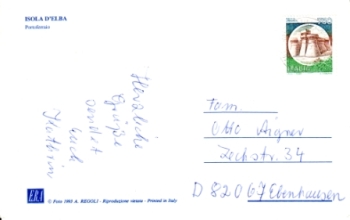 ISOLA D'ELBA
Portoferraio
Herzliche
Grüße
sendet
Euch
Kathrin
Fam.
Otto Aigner
Zechstr. 34
D 82067 Ebenhausen
© Foto 1992 A. REGOLI - Riproduzione vietata - Printed in Italy